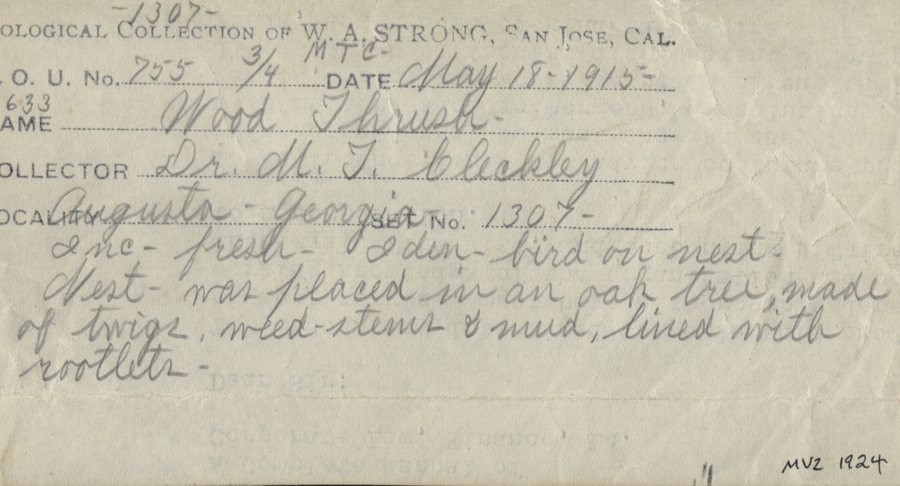 -1307-
OLOGICAL COLLECTION OF W. A. STRONG, SAN JOSE, CAL.
. O. U. No. 755 3/4 MTC- DATE May 18-1915-
633
AME Wood Thrush-
OLLECTOR Dr. M. T. Cleckley
OCALITY Augusta - Georgia SET No. 1307-
Inc- fresh- Iden- bird on nest-
Nest- was placed in an oak tree, made
of twigs, weed-stems & mud, lined with
rootlets-
Dear Sir:
Corporate Law, Finance,
A Complete Manual of
MVZ 1924